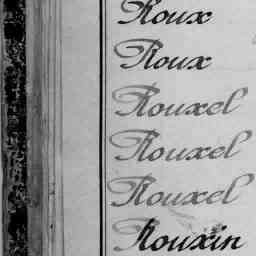 Roux
Roux
Rouxel
Rouxel
Rouxel
Rouxin